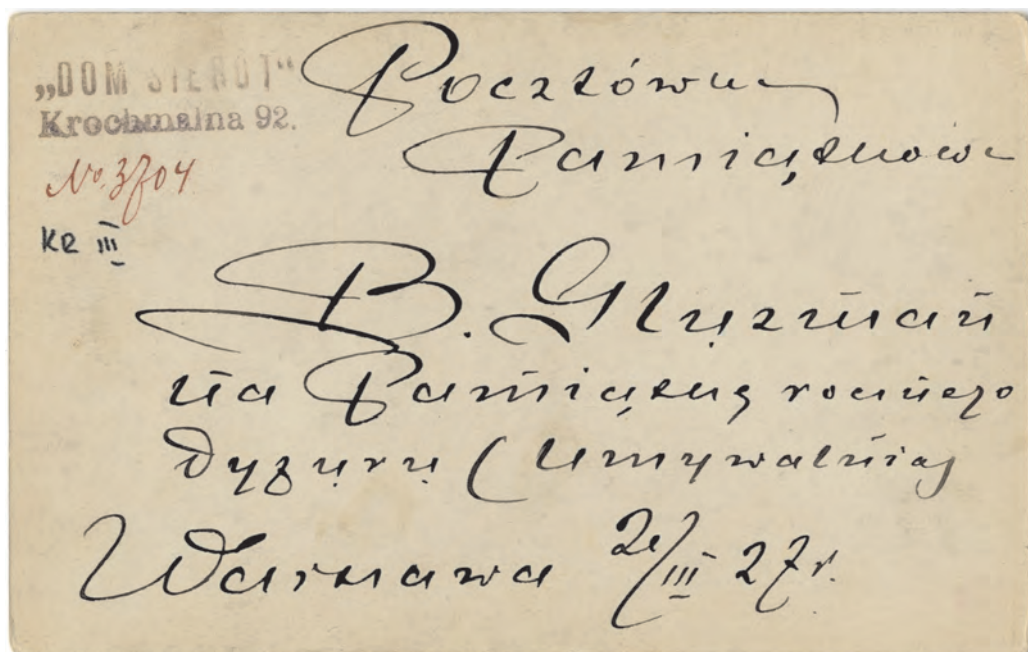 „DOM SIEROT“
Krochmalna 92.
No. 3704
KR III
Pocztówka
Pamiątkowa
B. Gluzman
na Pamiątkę rocznego
Dyżuru (Umywalnia)
Warszawa 21/III 27 r.